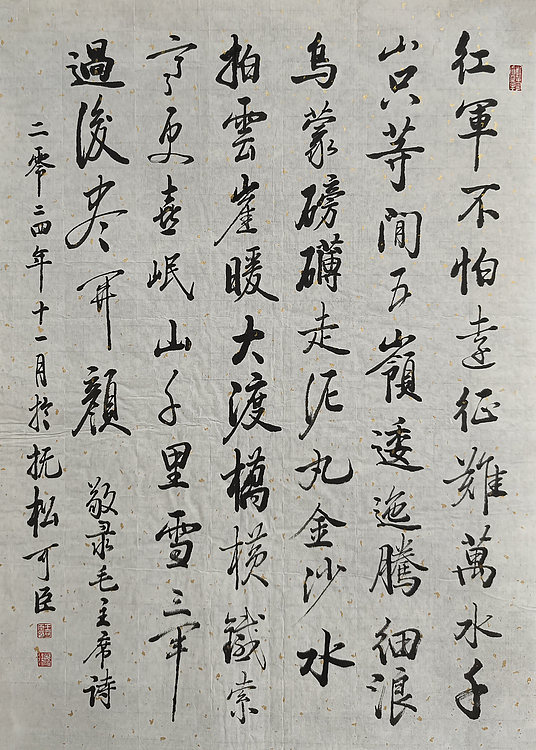 紅軍不怕遠征難萬水千
山只等閒五嶺逶迤騰細浪
烏蒙磅礴走泥丸金沙水
拍雲崖暖大渡橋橫鐵索
寒更喜岷山千里雪三軍
過後盡開顏
敬录毛主席詩
二零二四年十一月於抚松可臣